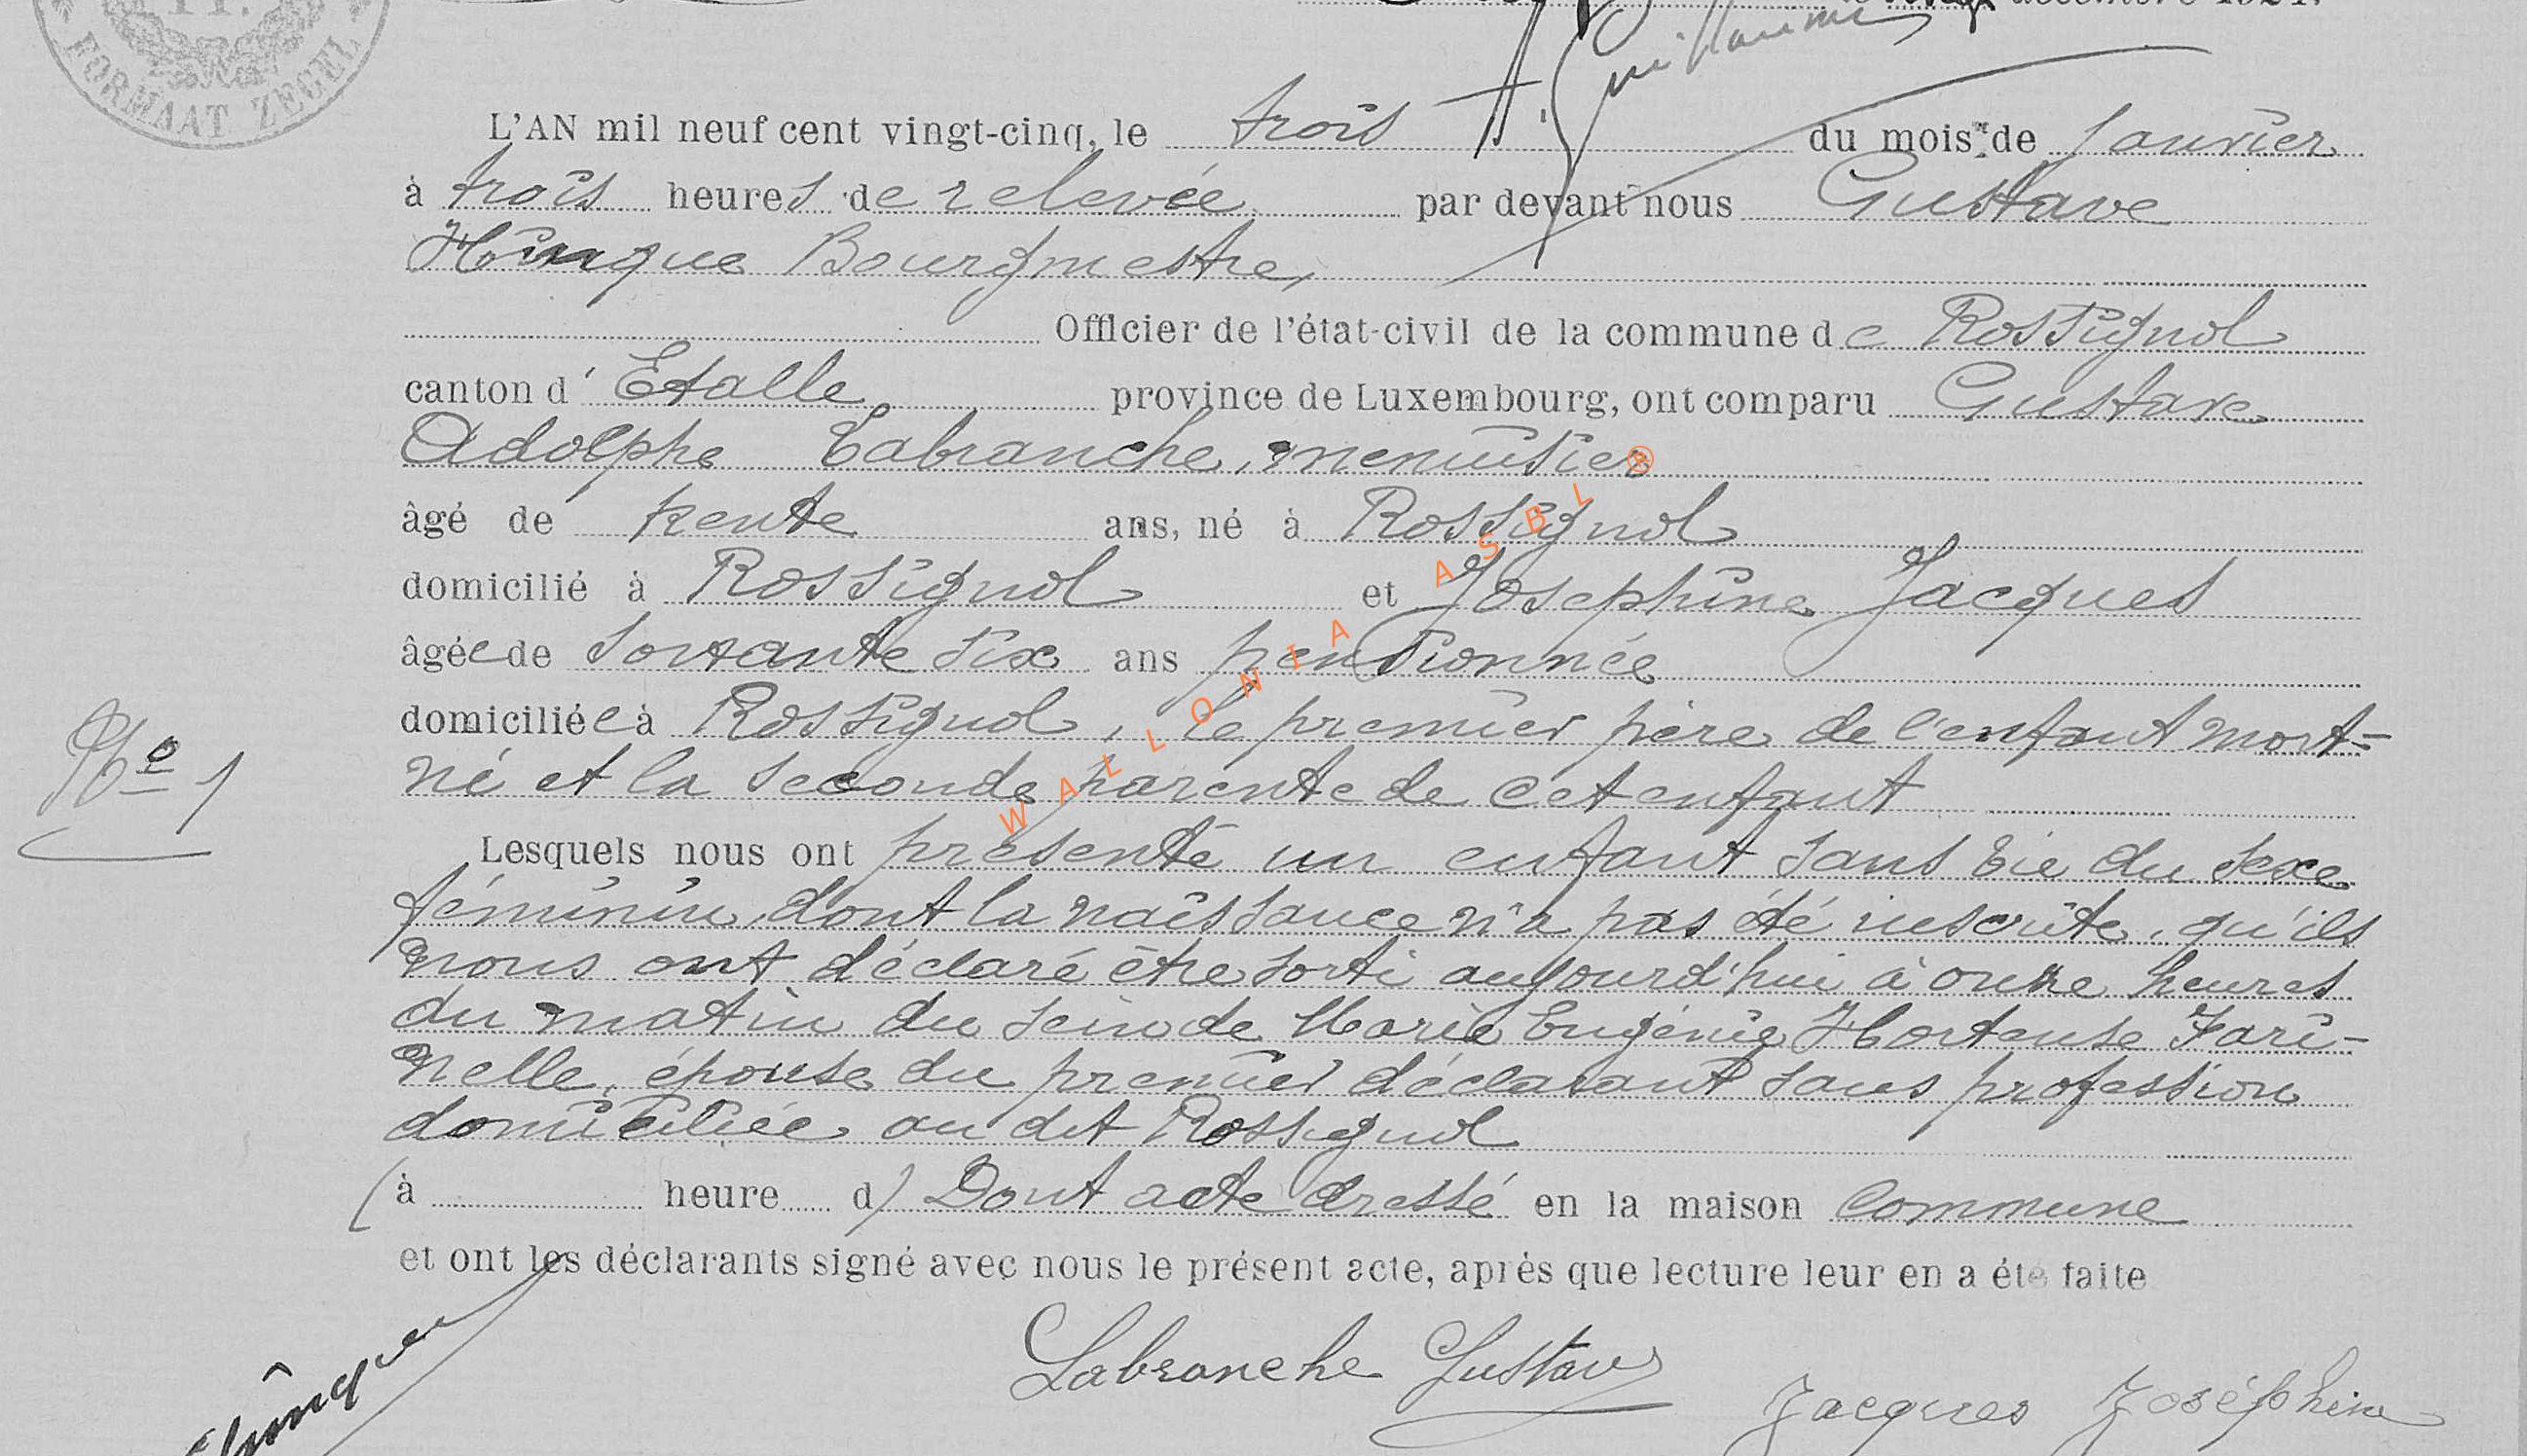 FORMAAT ZEGEL
décembre 1924.
Guillaume
L'AN mil neuf cent vingt-cinq, le trois du mois de Janvier
à trois heures de relevée par devant nous Gustave
Hinque Bourgmestre,
Officier de l'état-civil de la commune de Rossignol
canton d' Etalle province de Luxembourg, ont comparu Gustave
Adolphe Labranche, menuisier
âgé de trente ans, né à Rossignol
domicilié à Rossignol et Joséphine Jacques
âgée de soixante six ans pensionnée
domiciliée à Rossignol, le premier père de l'enfant mort-
né et la seconde parente de cet enfant
No 1
Lesquels nous ont présenté un enfant sans vie du sexe
féminin, dont la naissance n'a pas été inscrite, qu'ils
nous ont déclaré être sorti aujourd'hui à onze heures
du matin du sein de Marie Eugénie Hortense Fari-
nelle, épouse du premier déclarant sans profession
domiciliée au dit Rossignol
(à heure d) Dont acte dressé en la maison Commune
et ont les déclarants signé avec nous le présent acte, après que lecture leur en a été faite
Labranche Gustave
Jacques Joséphine
Hinque
WALLONIA ASBL ®